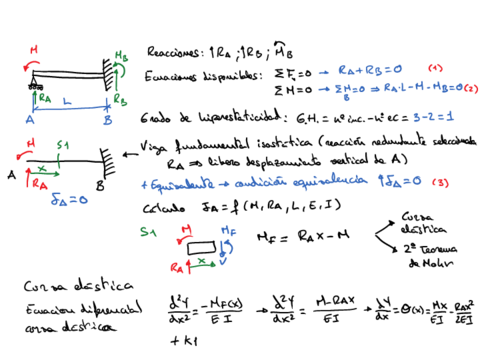 M
M_B
R_A
L
R_B
A
B
Reacciones: ↑R_A ; ↑R_B ; M_B
Ecuaciones disponibles: ΣF_i=0 → R_A+R_B=0 (1)
ΣM=0 → ΣM_B=0 ⇒ R_A·L-M-M_B=0 (2)
Grado de hiperestaticidad: G.H.=nº inc.-nº ec=3-2=1
M
S1
A
x
R_A
B
δ_A=0
Viga fundamental isostática (reacción redundante seleccionada
R_A ⇒ libero desplazamiento vertical de A)
+ Equivalente → condición equivalencia ↑δ_A=0 (3)
Cálculo δ_A=f(M,R_A,L,E,I)
S1
M
M_F
R_A
x
V
M_F = R_A x - M
Curva elástica
2º Teorema de Mohr
Curva elástica
Ecuación diferencial
curva elástica
d²y/dx² = -M_F(x)/EI → d²y/dx² = M-R_A x/EI → dy/dx=θ(x)=Mx/EI - R_A x²/2EI
+ K1